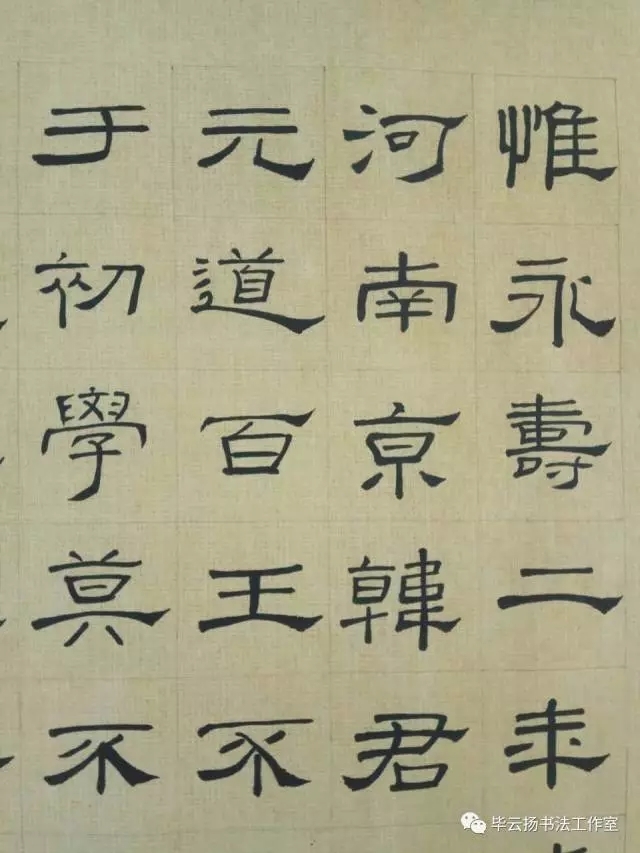 惟永壽二年
河南京韓君
元道百王不
于初學莫不
毕云扬书法工作室